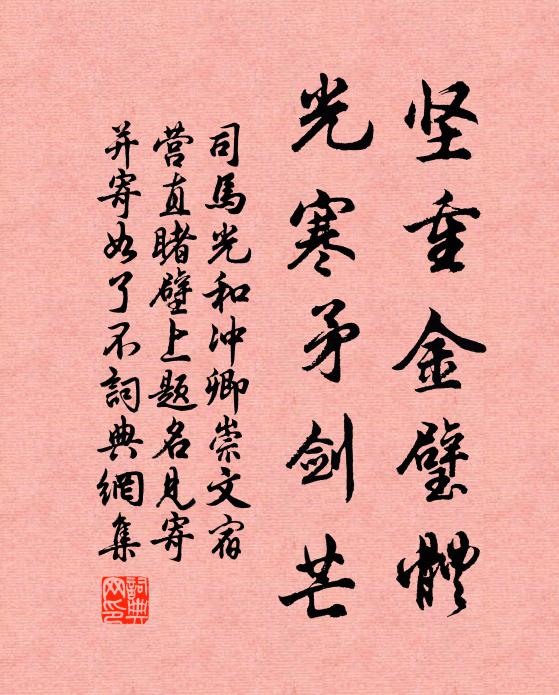 坚重金璧體
光寒矛剑芒
司馬光和冲卿崇文宿
营直睹壁上题名見寄
并寄如了不詞典網集
詞典
网印